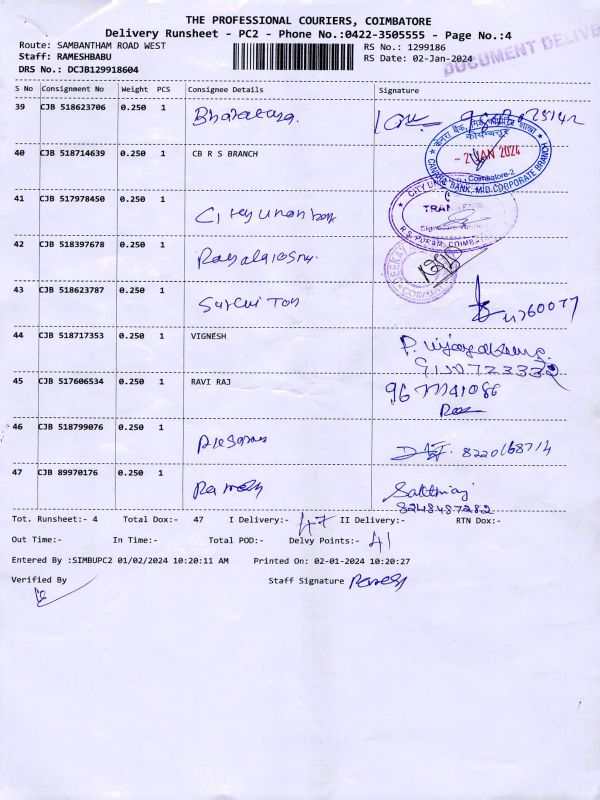 THE PROFESSIONAL COURIERS, COIMBATORE
Delivery Runsheet - PC2 - Phone No.:0422-3505555 - Page No.:4
Route: SAMBANTHAM ROAD WEST
RS No.: 1299186
Staff: RAMESHBABU
RS Date: 02-Jan-2024
DRS No.: DCJB129918604
DOCUMENT DELIVE
S No Consignment No Weight PCS Consignee Details Signature
39 CJB 518623706 0.250 1
40 CJB 518714639 0.250 1 CB R S BRANCH
केनरा बैंक
- 2 JAN 2024
Coimbatore-2
CANARA BANK, MID CORPORATE BRANCH
41 CJB 517978450 0.250 1
CITY UNI
TRAN
R.S. PURAM, COIMBAT
42 CJB 518397678 0.250 1
43 CJB 518623787 0.250 1
44 CJB 518717353 0.250 1 VIGNESH
45 CJB 517606534 0.250 1 RAVI RAJ
46 CJB 518799076 0.250 1
8220168714
47 CJB 89970176 0.250 1 Ramesh
8248487282
Tot. Runsheet:- 4 Total Dox:- 47 I Delivery:- 47 II Delivery:- RTN Dox:-
Out Time:- In Time:- Total POD:- Delvy Points:- 41
Entered By :SIMBUPC2 01/02/2024 10:20:11 AM Printed On: 02-01-2024 10:20:27
Verified By Staff Signature Ramesh